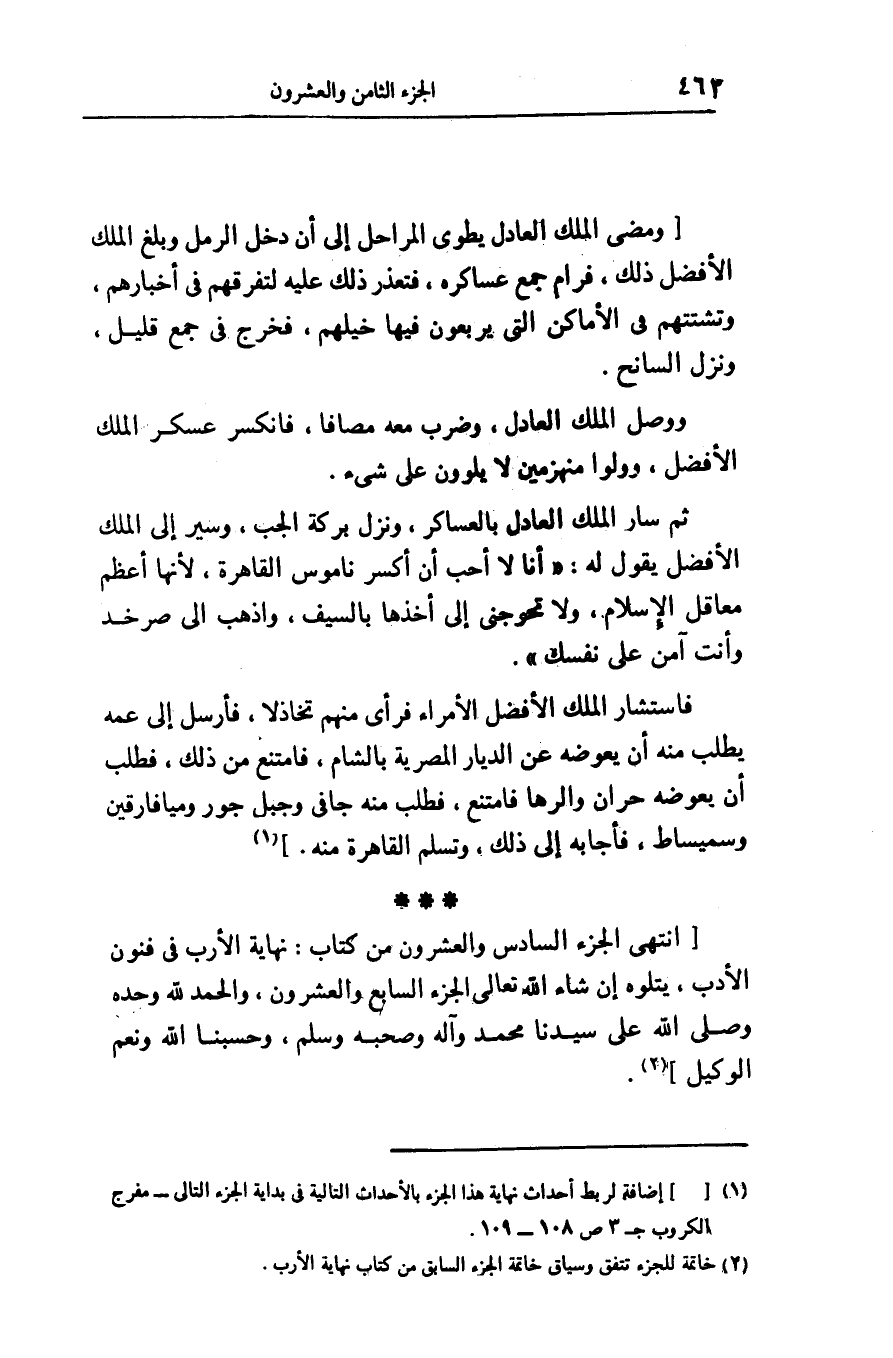 ٤٦٣ الجزء الثامن والعشرون
[ ومضى الملك العادل يطوى المراحل إلى أن دخل الرمل وبلغ الملك
الأفضل ذلك ، فرام جمع عساكره ، فتعذر ذلك عليه لتفرقهم فى أخبارهم ،
وتشتتهم فى الأماكن التى يربعون فيها خيلهم ، فخرج فى جمع قليـل ،
ونزل السانح .
ووصل الملك العادل ، وضرب معه مصافا ، فانكسر عسكـر الملك
الأفضل ، وولوا منهزمين لا يلوون على شىء .
ثم سار الملك العادل بالعساكر ، ونزل بركة الجب ، وسير إلى الملك
الأفضل يقول له : « أنا لا أحب أن أكسر ناموس القاهرة ، لأنها أعظم
معاقل الإسلام ، ولا تحوجنى إلى أخذها بالسيف ، واذهب الى صرخـد
وأنت آمن على نفسك » .
فاستشار الملك الأفضل الأمراء فرأى منهم تخاذلا ، فأرسل إلى عمه
يطلب منه أن يعوضه عن الديار المصرية بالشام ، فامتنع من ذلك ، فطلب
أن يعوضه حران والرها فامتنع ، فطلب منه جافى وجبل جور وميافارقين
وسميساط ، فأجابه إلى ذلك ، وتسلم القاهرة منه . ](١)
***
[ انتهى الجزء السادس والعشرون من كتاب : نهاية الأرب فى فنون
الأدب ، يتلوه إن شاء الله تعالى الجزء السابع والعشرون ، والحمد لله وحده
وصـلى الله على سيـدنا محمـد وآله وصحبـه وسلم ، وحسبنـا الله ونعم
الوكيل ](٢) .
(١) [ ] إضافة لربط أحداث نهاية هذا الجزء بالأحداث التالية فى بداية الجزء التالى ــ مفرج
الكروب جـ ٣ ص ١٠٨ ــ ١٠٩ .
(٢) خاتمة للجزء تتفق وسياق خاتمة الجزء السابق من كتاب نهاية الأرب .